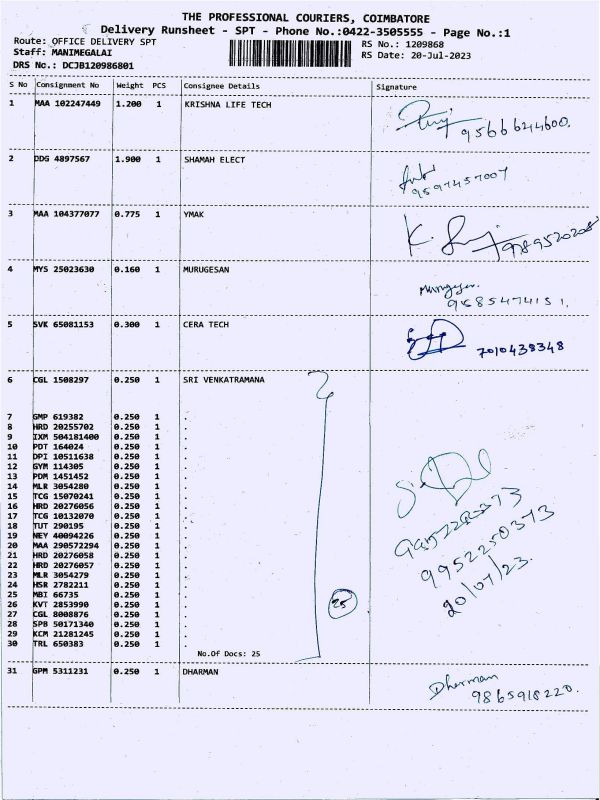 THE PROFESSIONAL COURIERS, COIMBATORE
Delivery Runsheet - SPT - Phone No.:0422-3505555 - Page No.:1
Route: OFFICE DELIVERY SPT
RS No.: 1209868
Staff: MANIMEGALAI
RS Date: 20-Jul-2023
DRS No.: DCJB120986801
S No Consignment No Weight PCS Consignee Details Signature
1 MAA 102247449 1.200 1 KRISHNA LIFE TECH
9566624600.
2 DDG 4897567 1.900 1 SHAMAH ELECT
9597457007
3 MAA 104377077 0.775 1 YMAK
9789520208
4 MYS 25023630 0.160 1 MURUGESAN
Murugesan.
9585474151.
5 SVK 65081153 0.300 1 CERA TECH
7010438348
6 CGL 1508297 0.250 1 SRI VENKATRAMANA
7 GMP 619382 0.250 1 .
8 HRD 20255702 0.250 1 .
9 IXM 504181400 0.250 1 .
10 PDT 164024 0.250 1 .
11 DPI 10511638 0.250 1 .
12 GYM 114305 0.250 1 .
13 PDM 1451452 0.250 1 .
14 MLR 3054280 0.250 1 .
15 TCG 15070241 0.250 1 .
16 HRD 20276056 0.250 1 .
17 TCG 10132070 0.250 1 .
18 TUT 290195 0.250 1 .
19 NEY 40094226 0.250 1 .
20 MAA 290572294 0.250 1 .
21 HRD 20276058 0.250 1 .
22 HRD 20276057 0.250 1 .
23 MLR 3054279 0.250 1 .
24 HSR 2782211 0.250 1 .
25 MBI 66735 0.250 1 .
26 KVT 2853990 0.250 1 .
27 CGL 8008876 0.250 1 .
28 SPB 50171340 0.250 1 .
29 KCM 21281245 0.250 1 .
30 TRL 650383 0.250 1 .
25
9952250373
20/07/23.
No.Of Docs: 25
31 GPM 5311231 0.250 1 DHARMAN
Dharman
9865918220.